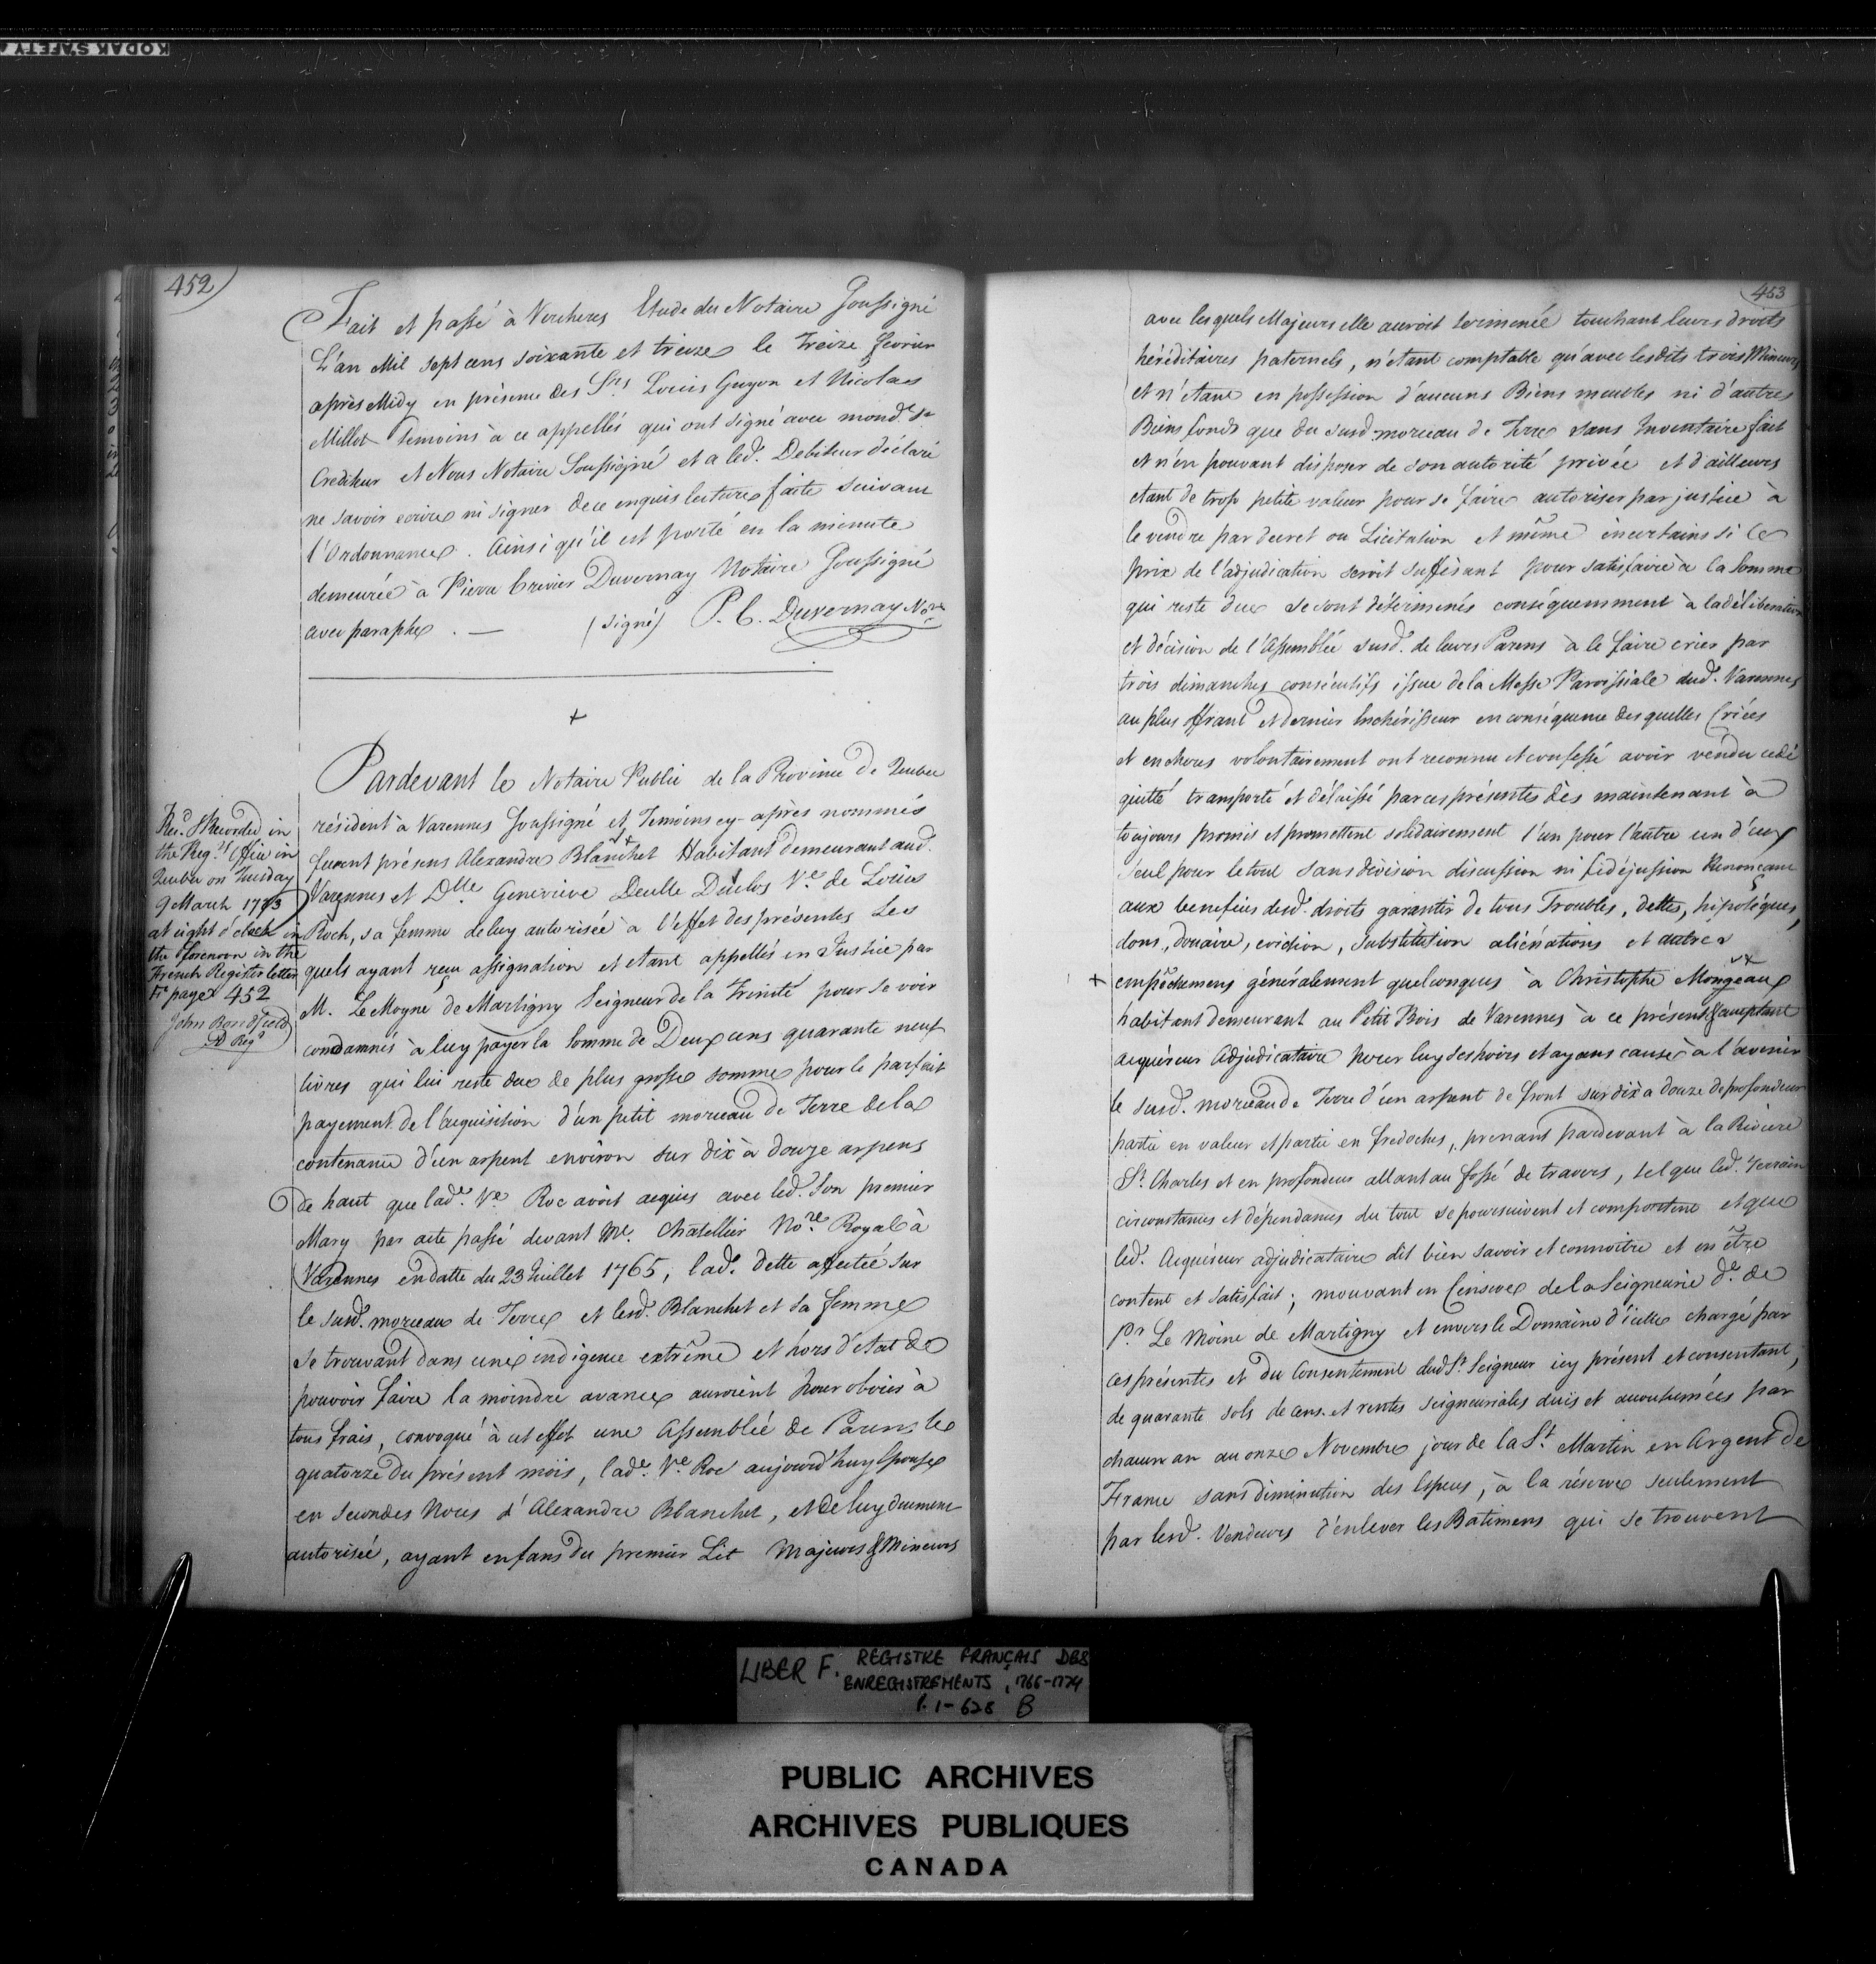 KODAK SAFETY
452
Fait et passé à Vercheres Etude du Notaire Soussigné
L'an Mil sept cens soixante et treize le treize fevrier
après Midy en présence des Srs. Louis Guyon et Nicolas
Millot Temoins à ce appellés qui ont signé avec mond. Sr
Crediteur et Nous Notaire Soussigné et a led. Debiteur déclaré
ne savoir ecrire ni signer de ce enquis lecture faite suivant
l'Ordonnance. Ainsi qu'il est porté en la minute
demeurée à Pierre Crevier Duvernay Notaire Soussigné
avec paraphe. — (signé) P. C. Duvernay Nore
+
Pardevant le Notaire Public de la Province de Quebec
résident à Varennes Soussigné et Temoins cy-après nommés
furent présens Alexandre Blanchet Habitant demeurant aud.
Varennes et Dlle Geneviève Duclos Ve. de Louis
Roch, sa femme de luy autorisée à l'effet des présentes Les
quels ayant reçu assignation et etant appellés en Justice par
M. Le Moyne de Martigny Seigneur de la Trinité pour se voir
condamnés à luy payer la somme de Deux cens quarante neuf
livres qui lui reste due de plus grosse somme pour le parfait
payement de l'acquisition d'un petit morceau de Terre de la
contenance d'un arpent environ sur dix à douze arpens
de haut que lade. Ve Roc avoit acquis avec led. Son premier
Mary par acte passé devant Me. Chatellier Nore. Royal à
Varennes en datte du 23 Juillet 1765, lad. dette affectée sur
le susd. morceau de Terre et lesd. Blanchet et sa femme
se trouvant dans une indigence extrême et hors d'état de
pouvoir faire la moindre avance auroient pour obvier à
tous frais, convoqué à cet effet une Assemblée de Parens le
quatorze du présent mois, lade. Ve Roc aujourd'huy Epouse
en secondes Noces d'Alexandre Blanchet, et de luy duement
autorisée, ayant enfans du premier Lit Majeurs & Mineurs
Recd. & Recorded in
the Regrs. Office in
Quebec on Tuesday
9 March 1773
at eight o'clock in
the forenoon in the
French Register letter
F. page 452
John Bondfield
D Regr
453
avec lesquels Majeurs elle auroit terminée touchant leurs droits
héréditaires paternels, n'étant comptable qu'avec lesdits trois Mineurs
et n'étant en possession d'aucuns Biens meubles ni d'autres
Biens fonds que du susd. morceau de Terre sans Inventaire fait
et n'en pouvant disposer de son autorité privée et d'ailleurs
etant de trop petite valeur pour se faire autoriser par justice à
le vendre par decret ou Licitation et même incertains si le
prix de l'adjudication seroit suffisant pour satisfaire à la Somme
qui reste due se sont déterminés conséquemment à la déliberation
et décision de l'Assemblée susd. de leurs Parens à le faire crier par
trois dimanches consécutifs issue de la Messe Paroissiale dud. Varennes
au plus offrant et dernier Enchérisseur en conséquence des quelles Criées
et encheres volontairement ont reconnu et confessé avoir vendu cedé
quitté transporté et délaissé par ces présentes dès maintenant à
toujours promis et promettent solidairement l'un pour l'autre un d'eux
seul pour le tout sans division discussion ni fidéjussion Renonçant
aux benefices desd. droits garantir de tous Troubles, dettes, hipotéques,
dons, douaire, eviction, substitution aliénations et autres
+ empêchemens généralement quelconques à Christophe Mongeau
habitant demeurant au Petit Bois de Varennes à ce présent & acceptant
acquéreur Adjudicataire pour luy ses hoirs et ayans cause à l'avenir
le susd. morceau de Terre d'un arpent de front sur dix a douze de profondeur
partie en valeur et partie en fredoches, prenant pardevant à la Riviere
St. Charles et en profondeur allant au fossé de travers, tel que led. terrain
circonstances et dépendances du tout se poursuivent et comportent et que
led. Acquéreur adjudicataire dit bien savoir et connoitre et en être
content et satisfait; mouvant en Censive de la Seigneurie de. de
Sr. Le Moine de Martigny et envers le Domaine d'icelle chargé par
ces présentes et du Consentement dud Sr. Seigneur icy présent et consentant,
de quarante sols de cens et rentes Seigneuriales duës et accoutumées par
chacun an au onze Novembre jour de la St. Martin en Argent de
France sans diminution des Especes, à la réserve seulement
par lesd. Vendeurs d'enlever les Batimens qui se trouvent
LIBER F. REGISTRE FRANÇAIS DES
ENREGISTREMENTS, 1766-1774
P. 1-628 B
PUBLIC ARCHIVES
ARCHIVES PUBLIQUES
CANADA